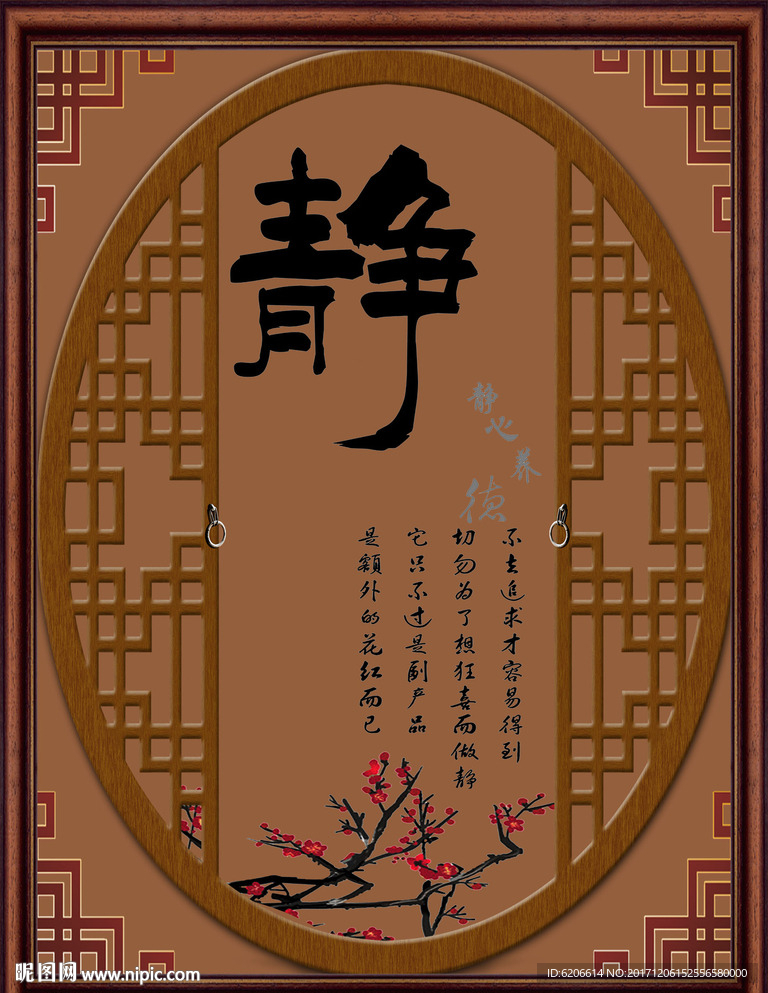 静
静心养德
不去追求才容易得到
切勿为了想狂喜而做静
它只不过是副产品
是额外的花红而已
昵图网 www.nipic.com
ID:6206614 NO:20171206152556580000